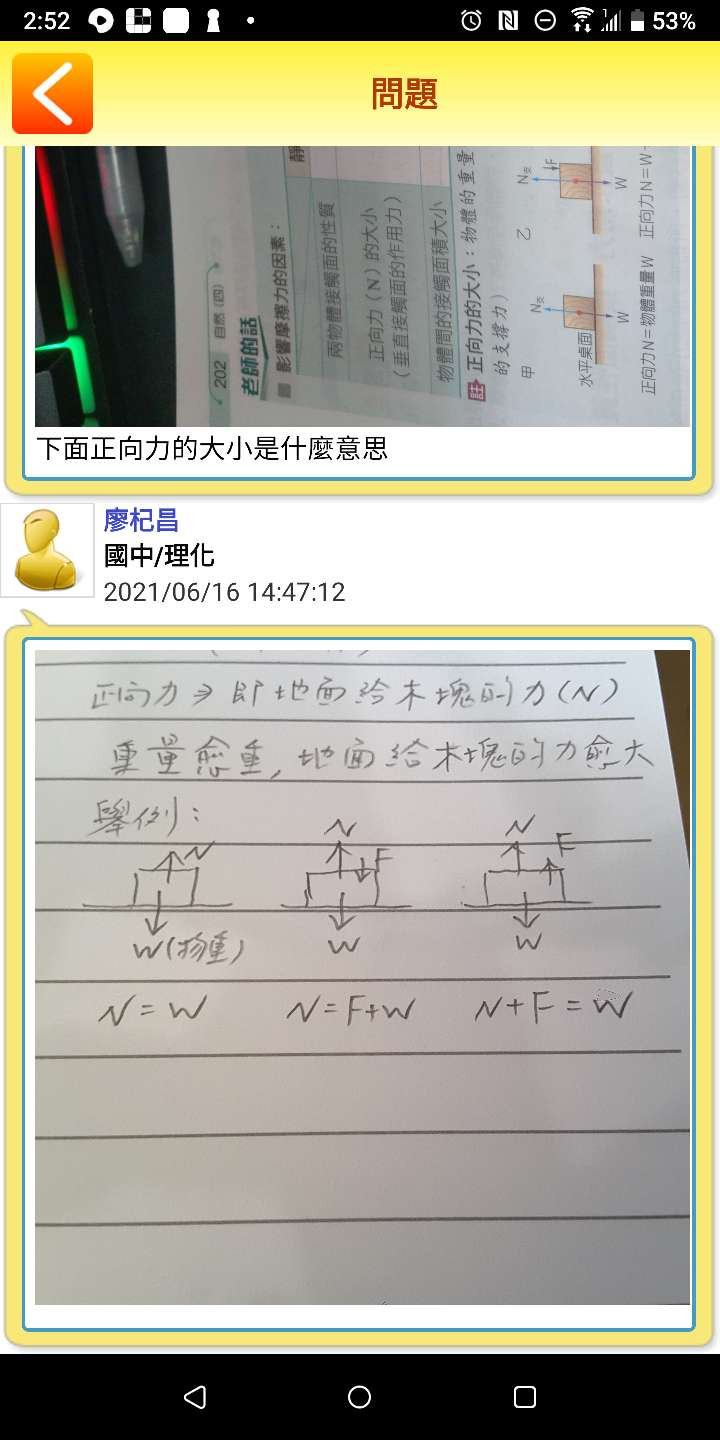 2:52
53%
問題
202 自然(四)
老師的話
影響摩擦力的因素：
兩物體接觸面的性質
正向力（N）的大小
（垂直接觸面的作用力）
物體間的接觸面積大小
註 正向力的大小：物體的重量
的支撐力）
甲
乙
水平桌面
N支
W
N支
F
W
正向力N=物體重量W
正向力N=W
下面正向力的大小是什麼意思
廖杞昌
國中/理化
2021/06/16 14:47:12
正向力⇒即地面給木塊的力(N)
重量愈重,地面給木塊的力愈大
舉例:
N
N
F
N
F
W(物重)
W
W
N=W
N=F+W
N+F=W